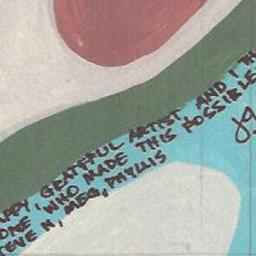 APPY, GRATEFUL ARTIST AND I TH
ONE WHO MADE THIS POSSIBLE
TEVE N, MEG, PHYLLIS